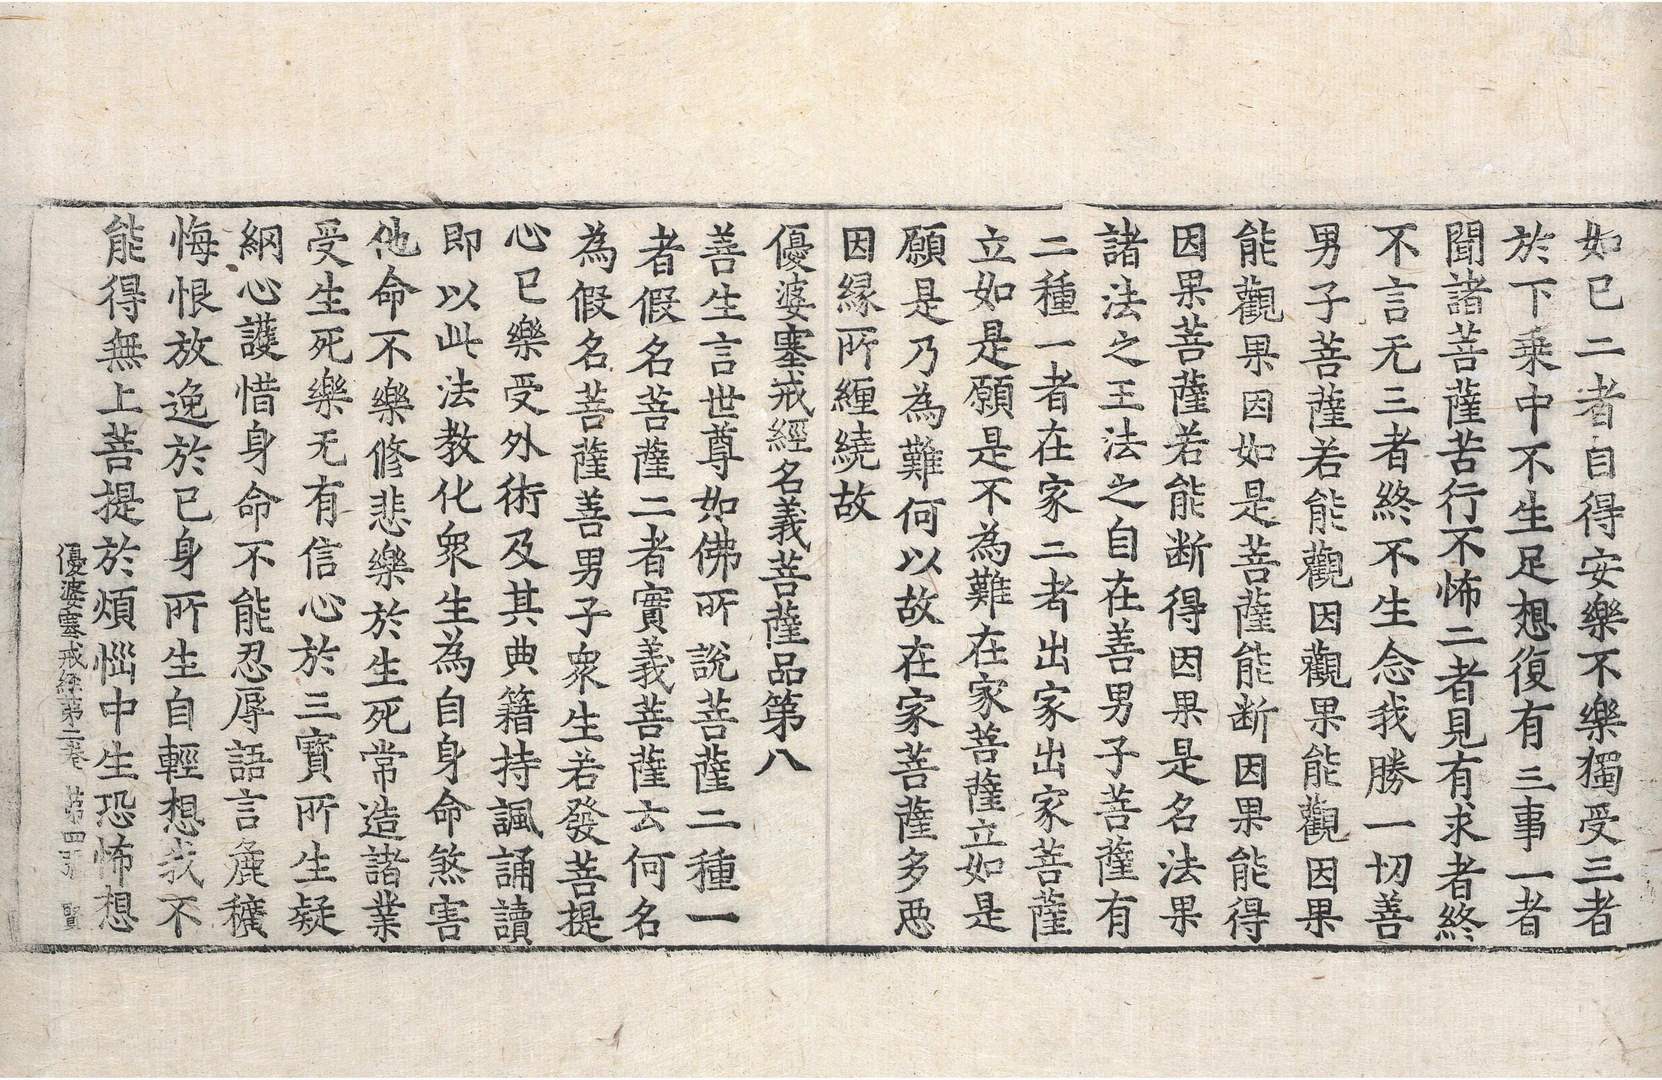 如已二者自得安樂不樂獨受三者
於下乗中不生足想復有三事一者
聞諸菩薩苦行不怖二者見有求者終
不言无三者終不生念我勝一切善
男子菩薩若能觀因觀果能觀因果
能觀果因如是菩薩能断因果能得
因果菩薩若能断得因果是名法果
諸法之王法之自在善男子菩薩有
二種一者在家二者出家出家菩薩
立如是願是不為難在家菩薩立如是
願是乃為難何以故在家菩薩多恶
因縁所纏繞故
優婆塞戒經名義菩薩品第八
善生言世尊如佛所說菩薩二種一
者假名菩薩二者實義菩薩云何名
為假名菩薩善男子衆生若發菩提
心已樂受外術及其典籍持諷誦讀
即以此法教化衆生為自身命煞害
他命不樂修悲樂於生死常造諸業
受生死樂无有信心於三寶所生疑
網心護惜身命不能忍辱語言麁穬
悔恨放逸於已身所生自輕想我不
能得無上菩提於煩惱中生恐怖想
優婆塞戒經第二卷 第四丈 賢